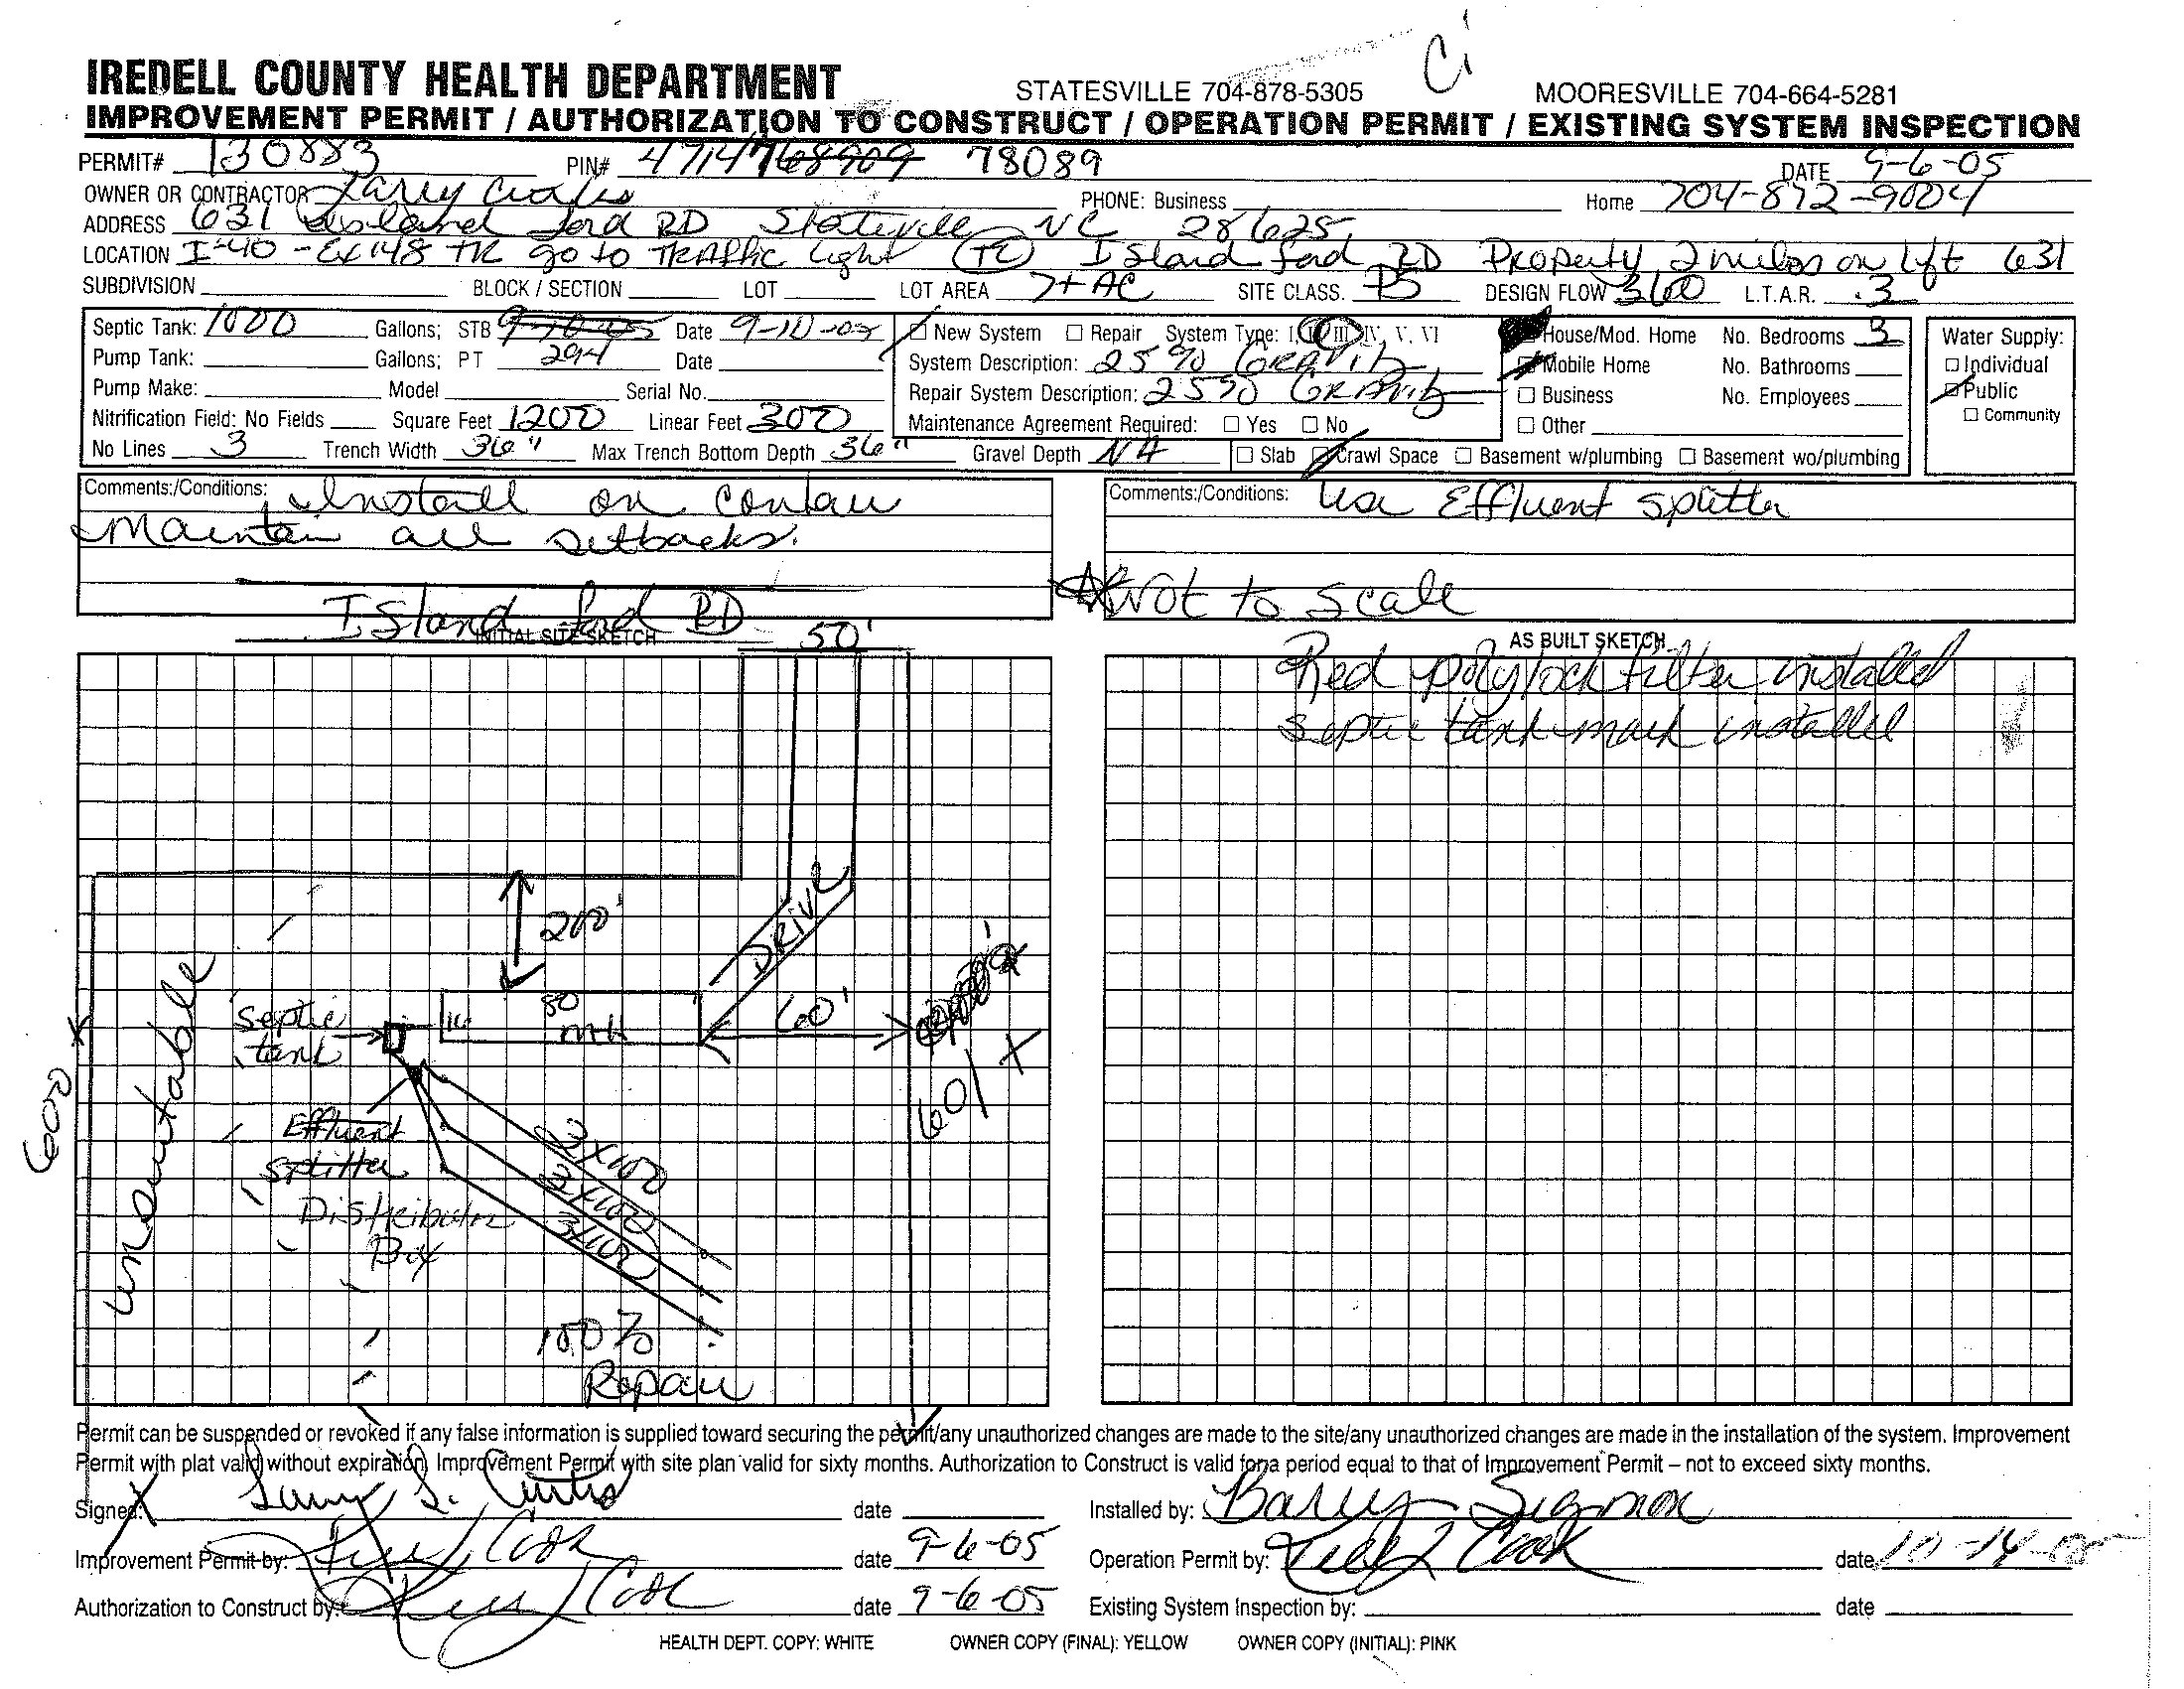 Ci
IREDELL COUNTY HEALTH DEPARTMENT STATESVILLE 704-878-5305 MOORESVILLE 704-664-5281
IMPROVEMENT PERMIT / AUTHORIZATION TO CONSTRUCT / OPERATION PERMIT / EXISTING SYSTEM INSPECTION
PERMIT# 130883 PIN# 4714768909 78089 DATE 9-6-05
OWNER OR CONTRACTOR Larry PHONE: Business Home 704-872-9004
ADDRESS 631 Island ford RD Statesville NC 28625
LOCATION I-40 - Ex 148 TR go to TRAffic Light (TL) Island ford RD Property 2 miles on lft 631
SUBDIVISION BLOCK / SECTION LOT LOT AREA 7+ AC SITE CLASS. PS DESIGN FLOW 360 L.T.A.R. .3
Septic Tank: 1000 Gallons; STB 9-10-05 Date 9-10-05
Pump Tank: Gallons; PT 294 Date
Pump Make: Model Serial No.
Nitrification Field: No Fields Square Feet 1200 Linear Feet 300
No Lines 3 Trench Width 36" Max Trench Bottom Depth 36" Gravel Depth NA
New System Repair System Type: I, II, III, IV, V, VI
System Description: 25% GRAvity
Repair System Description: 25% GRAvity
Maintenance Agreement Required: Yes No
Slab Crawl Space Basement w/plumbing Basement wo/plumbing
House/Mod. Home No. Bedrooms 3
Mobile Home No. Bathrooms
Business No. Employees
Other
Water Supply:
Individual
Public
Community
Comments:/Conditions: Install on contour
Maintain all setbacks.
Comments:/Conditions: Use Effluent splitter
Not to Scale
Island ford RD
INITIAL SITE SKETCH
50'
200'
DRIVE
septic
tank
16
80
MH
60'
601
600
unsuitable
Effluent
splitter
Distribution
Box
3x100
3x100
3x100
100%
Repair
AS BUILT SKETCH
Red polylock filter installed
septic tank mark installed
Permit can be suspended or revoked if any false information is supplied toward securing the permit/any unauthorized changes are made to the site/any unauthorized changes are made in the installation of the system. Improvement
Permit with plat valid without expiration. Improvement Permit with site plan valid for sixty months. Authorization to Construct is valid for a period equal to that of Improvement Permit – not to exceed sixty months.
Signed: X Larry S. Curtis date Installed by: Barry Sigmon
Improvement Permit by: Cook date 9-6-05 Operation Permit by: Cook date 10-14-05
Authorization to Construct by: Cook date 9-6-05 Existing System Inspection by: date
HEALTH DEPT. COPY: WHITE OWNER COPY (FINAL): YELLOW OWNER COPY (INITIAL): PINK